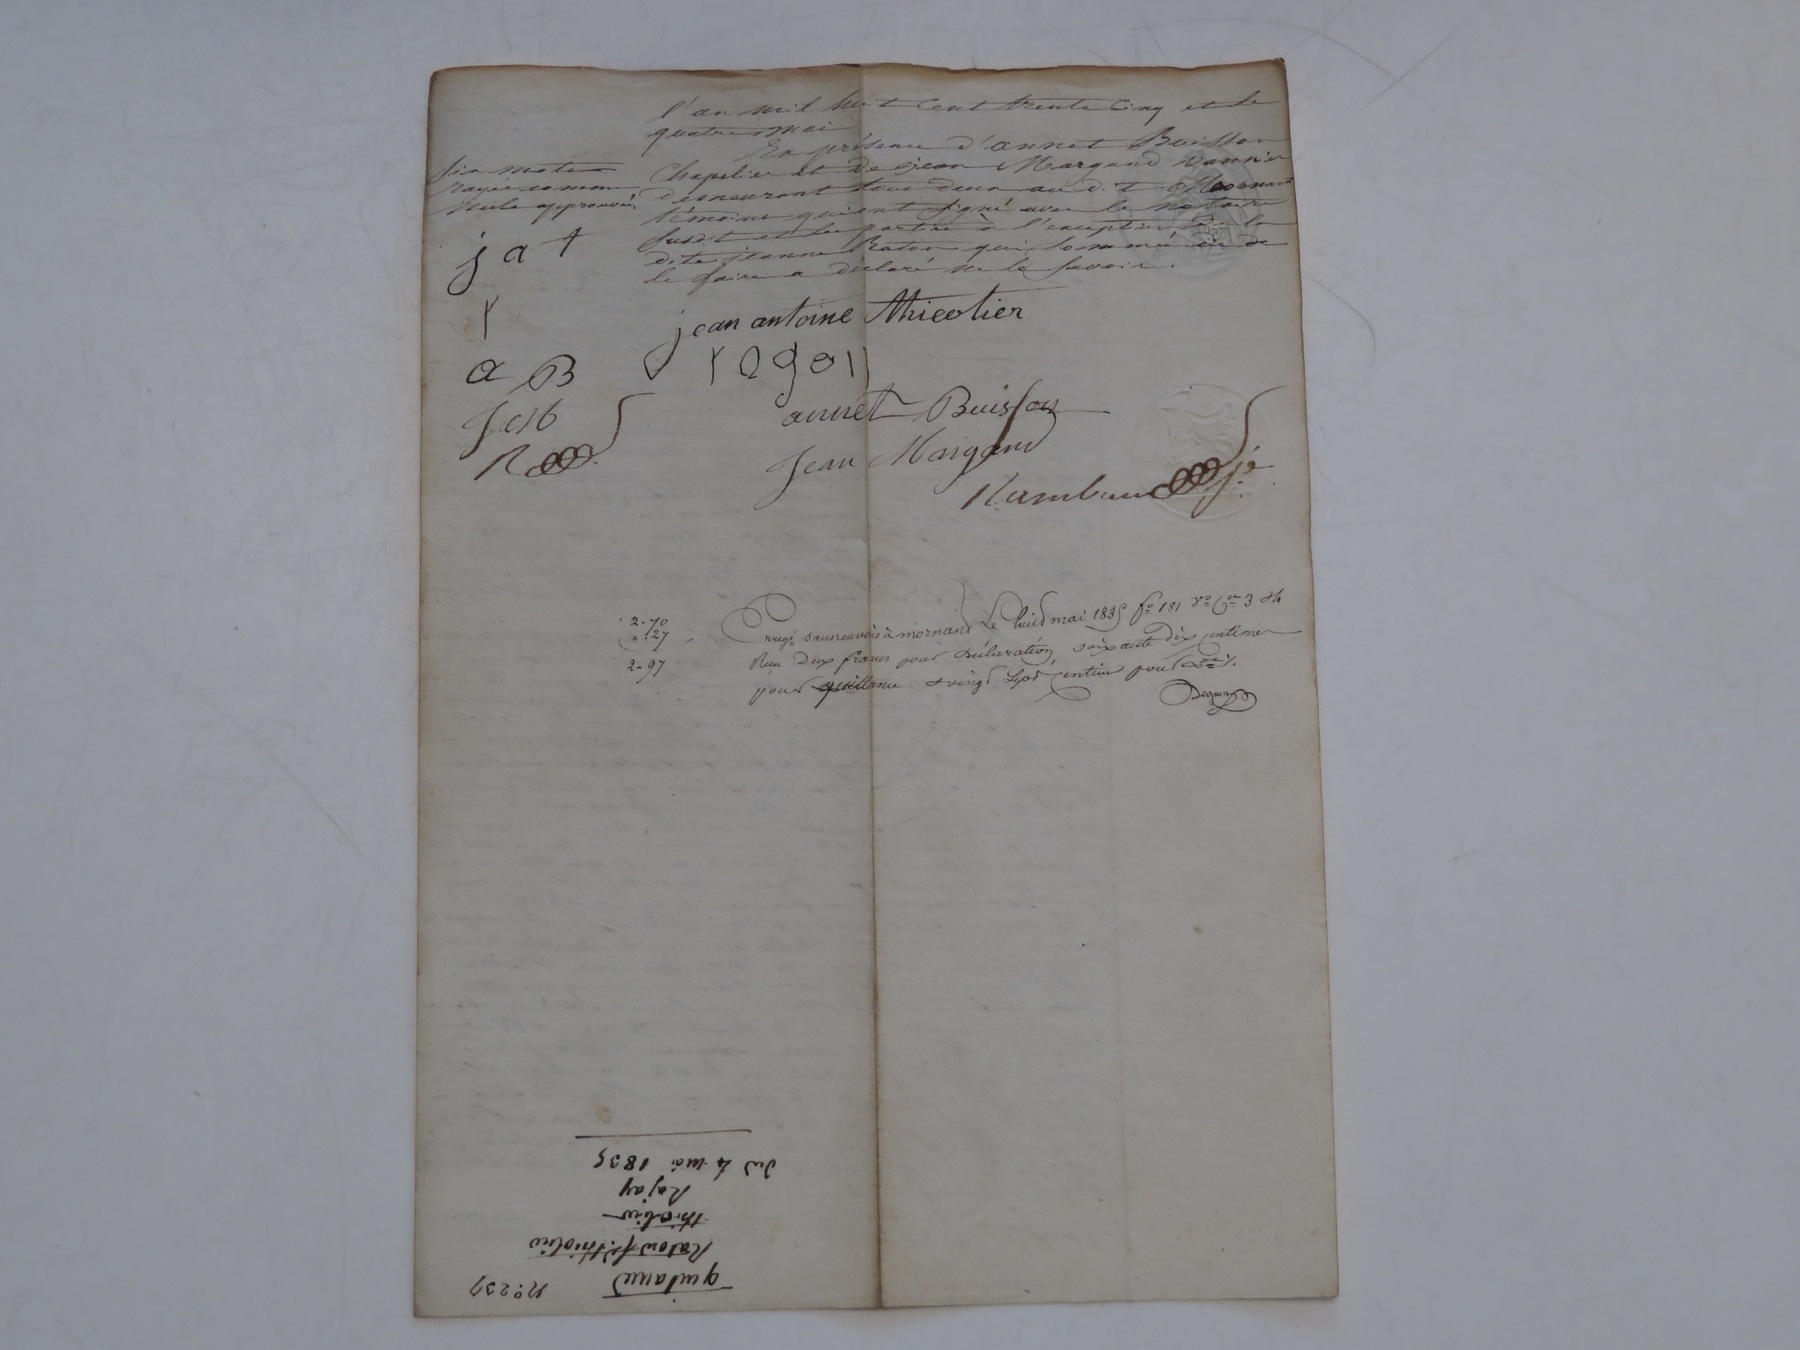 l'an mil huit cent trente cinq et le
quatre mai
En présence d'annet Buisson
Chapelier et de jean Margand vannier
demeurant tous deux au d. t Mornant
témoins qui ont signé avec le notaire
susdit et les parties à l'exception de la
dite jeanne Raton qui sommée de
le faire a déclaré ne le savoir.
six mots
rayés comme
nuls approuvés.
j a t
r
a B
R
jean antoine thieolier
annet Buisson
Jean Margand
Rambaud
2-70
"-27
2-97
Enregé sans renvois à mornant Le huit mai 1835 fo 181 Vo Ces 3 & 4
Reçu Deux francs pour Déclaration, soixante Dix centimes
pour quittance & vingt Sept centimes pour
No 239
quittance
Raton fe thiolier
thiolier
Rajay
du 4 mai 1835